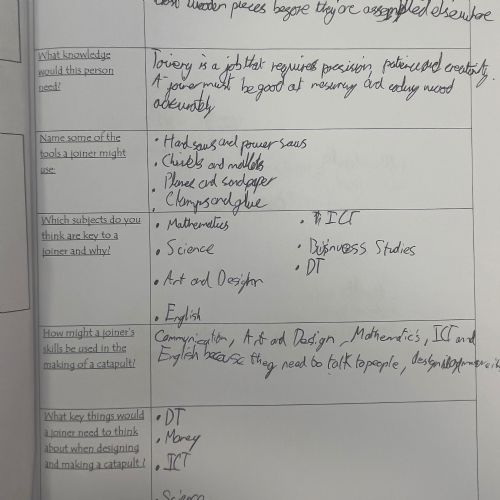 wooden pieces before they are assembled elsewhere
What knowledge
would this person
need?
Joinery is a job that requires precision, patience and creativity.
A joiner must be good at mesuring and cutting wood
accurately
Name some of the
tools a joiner might
use
• Handsaws and power saws
• Chisels and mallets
• Planes and sandpaper
• Clamps and glue
Which subjects do you
think are key to a
joiner and why?
• Mathematics
• Science
• Art and Design
• English
• ICT
• Business Studies
• DT
How might a joiner's
skills be used in the
making of a catapult?
Communication, Art and Design, Mathematic's, ICT and
English because they need to talk to people, design
What key things would
a joiner need to think
about when designing
and making a catapult?
• DT
• Money
• ICT
• Science